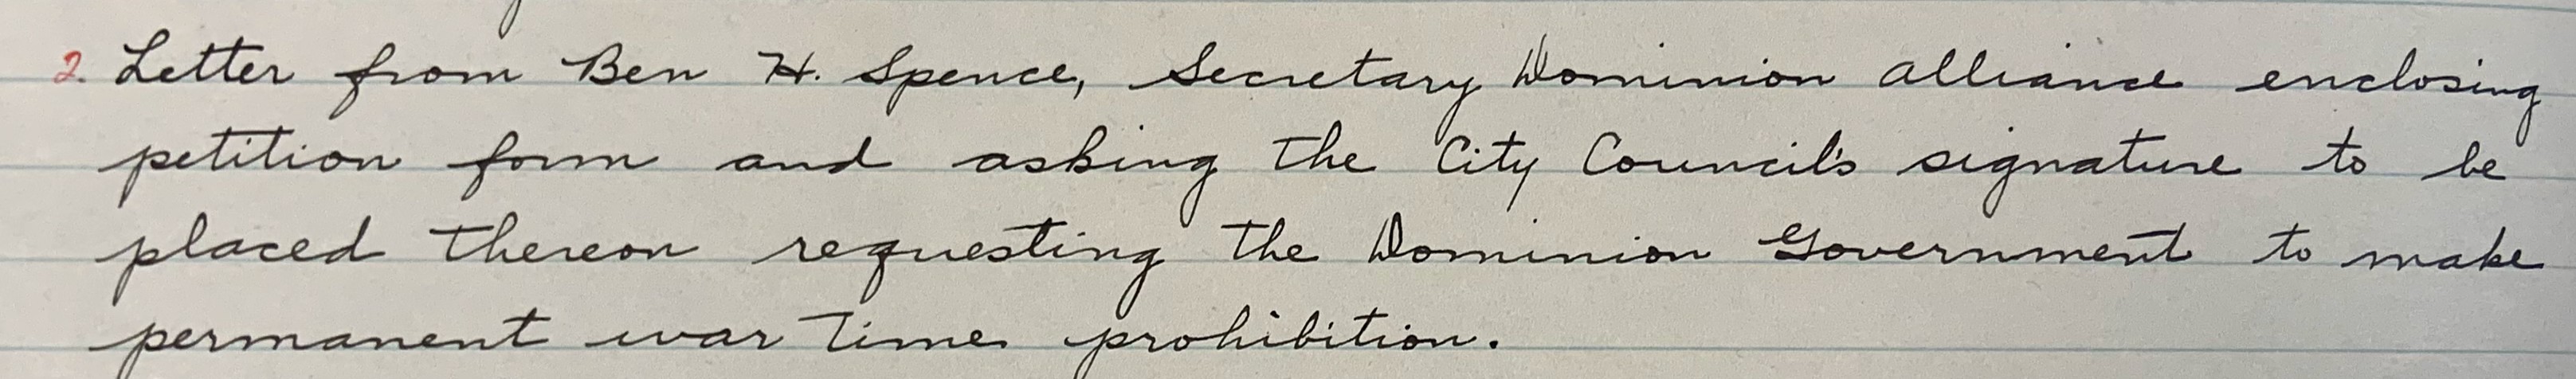 2. Letter from Ben H. Spence, Secretary Dominion Alliance enclosing
petition form and asking the City Council's signature to be
placed thereon requesting the Dominion Government to make
permanent war time prohibition.